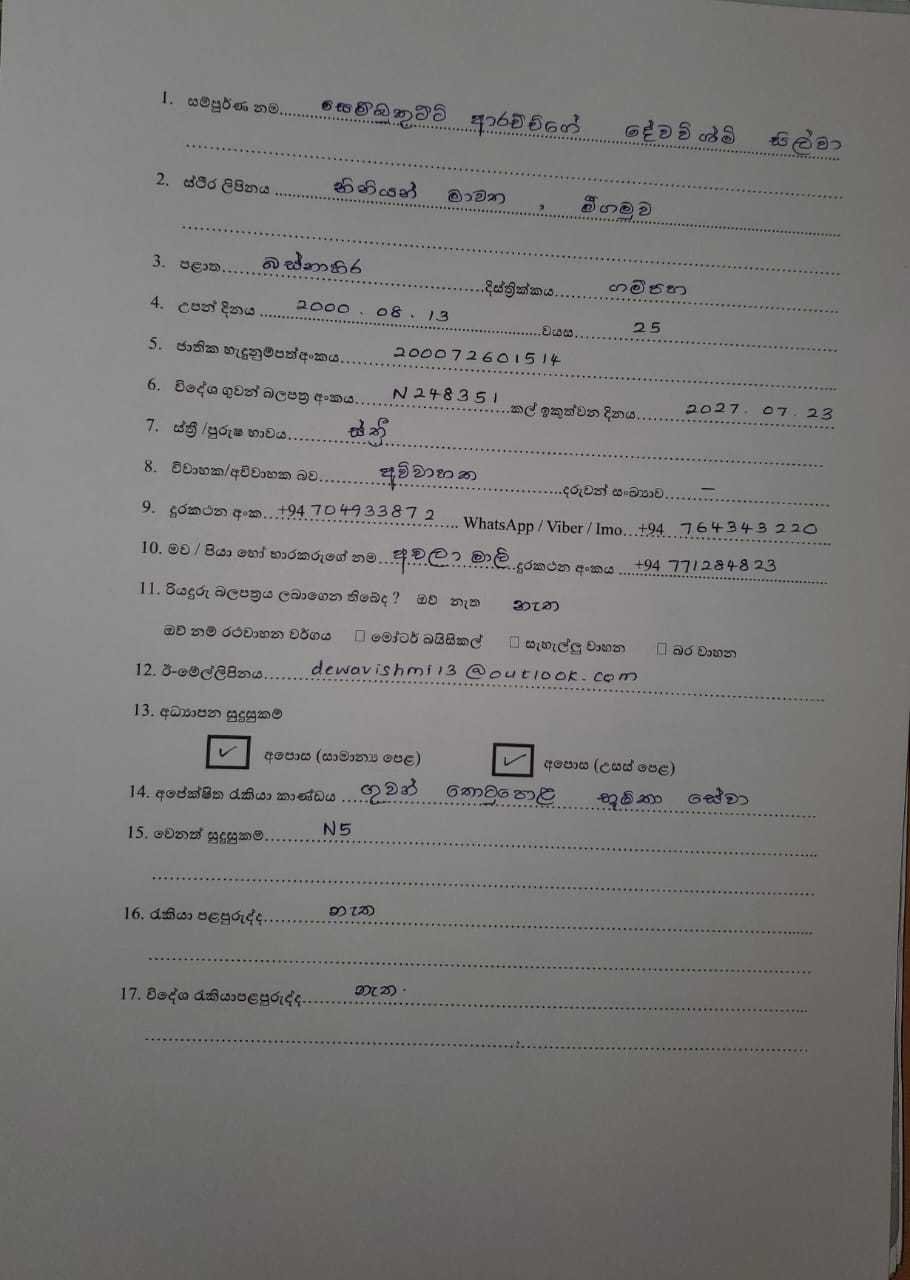 1. සම්පූර්ණ නම සෙම්බකුට්ටි ආරච්චිගේ දේවව්ශ්මි සිල්වා
2. ස්ථිර ලිපිනය නිනියන් මාවත , මීගමුව
3. පළාත බස්නාහිර දිස්ත්‍රික්කය ගම්පහ
4. උපන් දිනය 2000 . 08 . 13 වයස 25
5. ජාතික හැඳුනුම්පත්අංකය 200072601514
6. විදේශ ගුවන් බලපත්‍ර අංකය N248351 කල් ඉකුත්වන දිනය 2027. 07. 23
7. ස්ත්‍රී /පුරුෂ භාවය ස්ත්‍රී
8. විවාහක/අවිවාහක බව අවිවාහක දරුවන් සංඛ්‍යාව –
9. දුරකථන අංක +94 704933872 WhatsApp / Viber / Imo +94 764343220
10. මව / පියා හෝ භාරකරුගේ නම අචලා මාලි දුරකථන අංකය +94 771284823
11. රියදුරු බලපත්‍රය ලබාගෙන තිබේද ? ඔව් නැත නැත
ඔව් නම් රථවාහන වර්ගය □ මෝටර් බයිසිකල් □ සැහැල්ලු වාහන □ බර වාහන
12. ඊ-මේල්ලිපිනය dewavishmi13@outlook.com
13. අධ්‍යාපන සුදුසුකම්
✓ අපොස (සාමාන්‍ය පෙළ) ✓ අපොස (උසස් පෙළ)
14. අපේක්ෂිත රැකියා කාණ්ඩය ගුවන් තොටුපොළ භූමිකා සේවා
15. වෙනත් සුදුසුකම් N5
16. රැකියා පළපුරුද්ද නැත
17. විදේශ රැකියාපළපුරුද්ද නැත